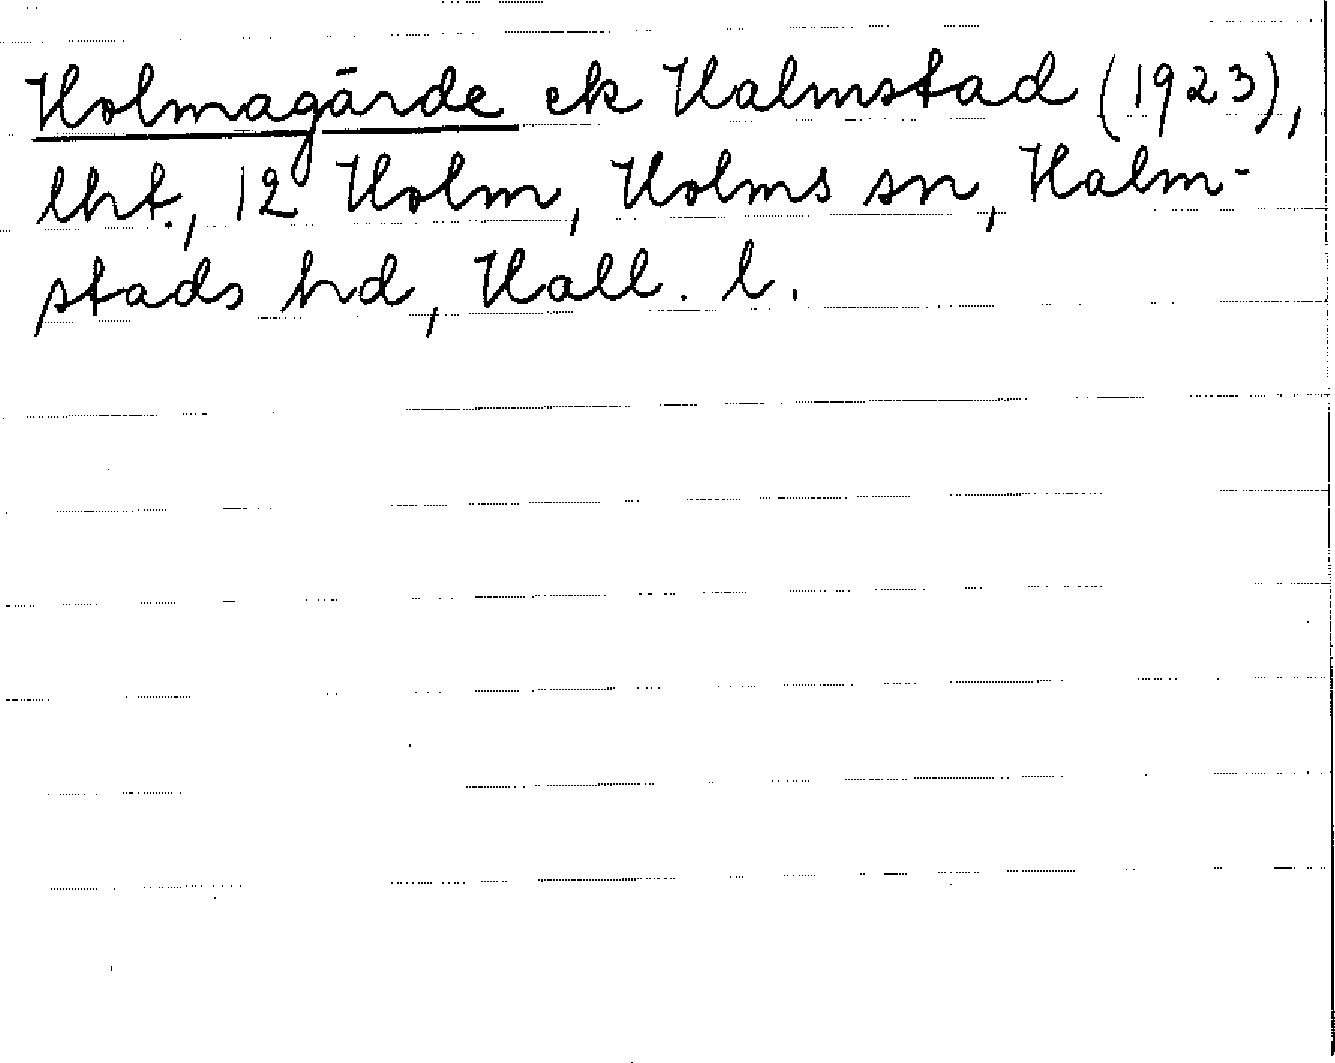 Holmagärde ek Halmstad (1923),
lht., 12 Holm, Holms sn, Halm-
stads hd, Hall. l.